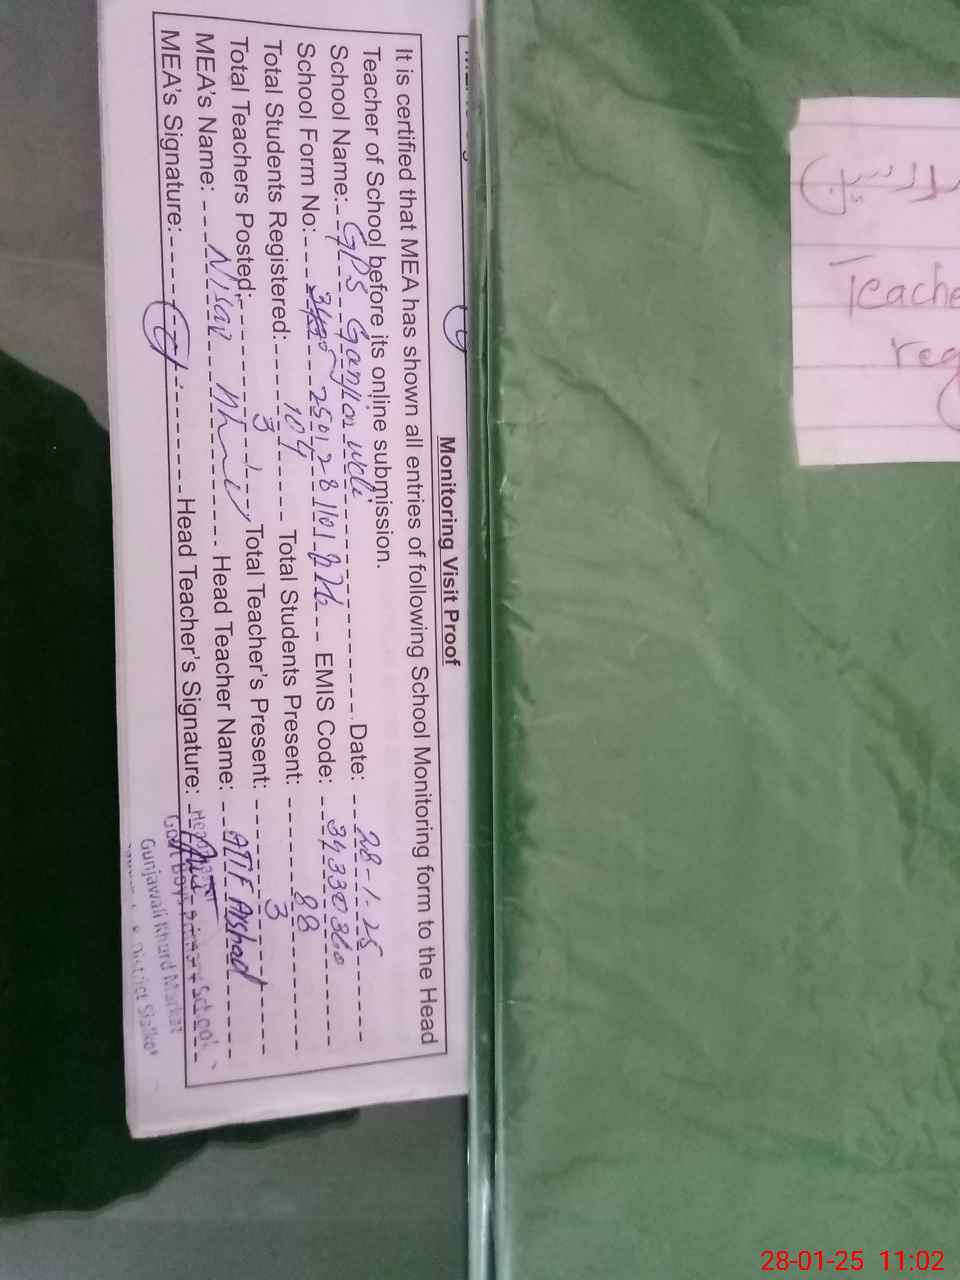 Monitoring Visit Proof
It is certified that MEA has shown all entries of following School Monitoring form to the Head
Teacher of School before its online submission.
School Name: GPS Date: 28-1-25
School Form No: EMIS Code: 34330360
Total Students Registered: 104 Total Students Present: 88
Total Teachers Posted: 3 Total Teacher's Present: 3
MEA's Name: Nisar Head Teacher Name: ATIF Arshad
MEA's Signature: Head Teacher's Signature:
Gunjawali Khurd Market
District Sialkot
Teache
reg
28-01-25 11:02